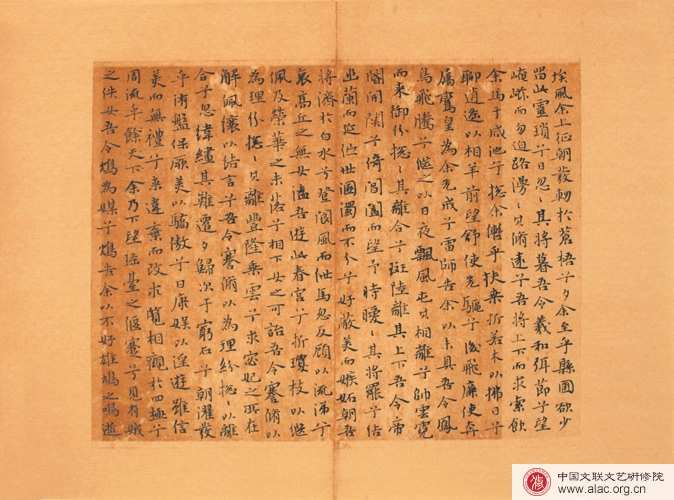 埃風余上征朝發軔於蒼梧兮夕余至乎縣圃欲少
留此靈瑣兮日忽〻其將暮吾令羲和弭節兮望
崦嵫而勿迫路漫〻其脩遠兮吾將上下而求索飲
余馬于咸池兮揔余轡乎扶桑折若木以拂日兮
聊逍遙以相羊前望舒使先驅兮後飛廉使奔
屬鸞皇為余先戒兮雷師告余以未具吾令鳳
鳥飛騰兮繼之以日夜飄風屯其相離兮帥雲霓
而來御紛揔〻其離合兮斑陸離其上下吾令帝
閽開關兮倚閶闔而望予時曖〻其將罷兮結
幽蘭而延佇世溷濁而不分兮好蔽美而嫉妬朝吾
將濟於白水兮登閬風而緤馬忽反顧以流涕兮
哀高丘之無女溘吾遊此春宮兮折瓊枝以繼
佩及榮華之未落兮相下女之可詒吾令蹇脩以
為理紛揔〻其離豐隆乘雲兮求宓妃之所在
解佩纕以結言兮吾令蹇脩以為理紛揔以離
合兮忽緯繣其難遷夕歸次于窮石兮朝濯髮
乎洧盤保厥美以驕傲兮日康娛以淫遊雖信
美而無禮兮來違棄而改求覽相觀於四極兮
周流乎余天下余乃下望瑤臺之偃蹇兮見有娀
之佚女吾令鴆為媒兮鴆告余以不好雄鳩之鳴逝
中国文联文艺研修院
www.alac.org.cn